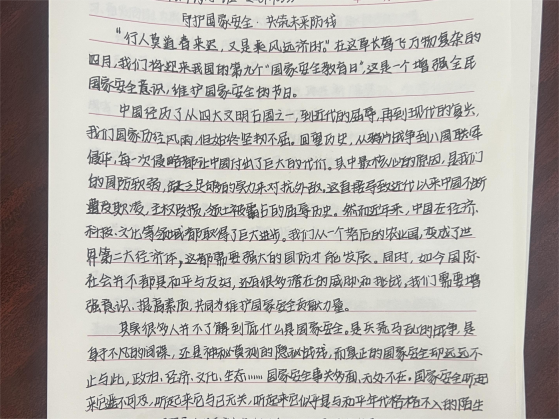 守护国家安全·共筑未来防线
“行人莫道春来迟，又是乘风远济时。”在这草长莺飞万物复杂的
四月，我们将迎来我国的第九个“国家安全教育日”，这是一个增强全民
国家安全意识，维护国家安全的节日。
中国经历了从四大文明古国之一，到近代的屈辱，再到现代的复兴，
我们国家历经风雨，但始终坚韧不屈。回望历史，从鸦片战争到八国联军
侵华，每一次侵略都让中国付出了巨大的代价。其中最核心的原因，是我们
的国防软弱，缺乏足够的实力来对抗外敌。这直接导致近代以来中国不断
遭受欺凌，主权沦丧，领土被霸占的屈辱历史。然而近年来，中国在经济、
科技、文化等领域都取得了巨大进步。我们从一个落后的农业国，变成了世
界第二大经济体，这都需要强大的国防才能发展。同时，如今国际
社会并不都是和平与友好，还有很多潜在的威胁和挑战，我们需要增
强意识、提高素质，共同为维护国家安全贡献力量。
其实很多人并不了解到底什么是国家安全。是兵荒马乱的战争，是
身手不凡的间谍，还是神秘莫测的隐秘战线，而真正的国家安全却远远不
止与此，政治、经济、文化、生态……国家安全事关多面，无处不在。国家安全听起
来遥不可及，听起来与己无关，听起来似乎是与和平年代格格不入的陌生